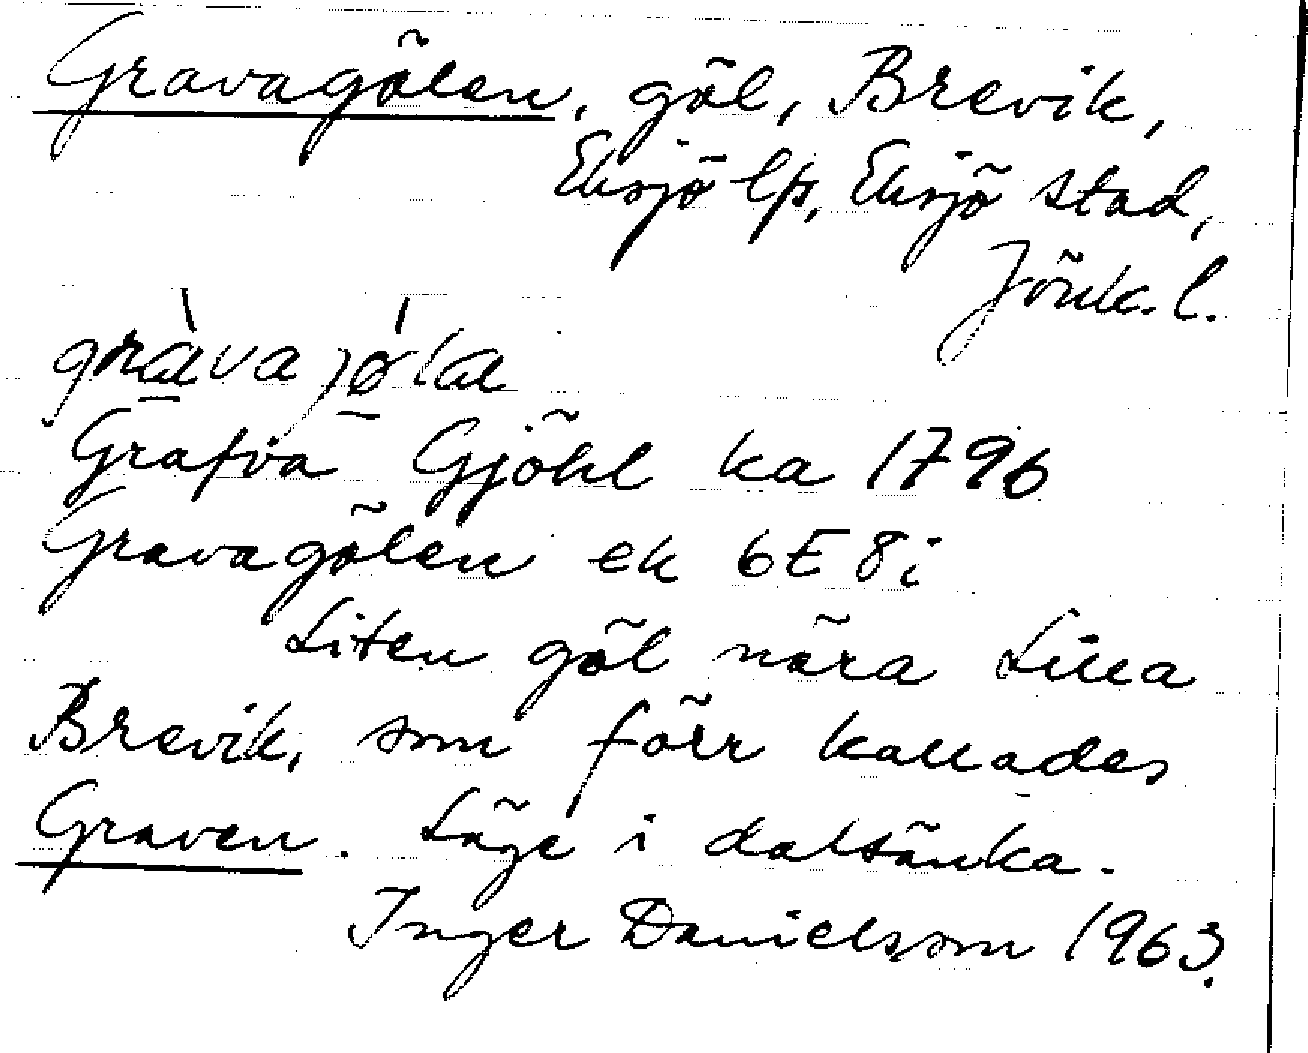 Gravagölen, göl, Brevik,
Eksjö lfs, Eksjö stad,
Jönk. l.
gràva jǿla
Grafva Gjöhl ka 1796
Gravagölen ek 6E 8i
Liten göl nära Lilla
Brevik, som förr kallades
Graven. Läge i dalsänka.
Inger Danielsson 1963.